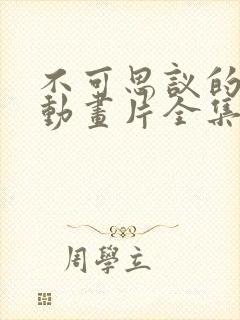 不可思議的
動畫片全集
周學立